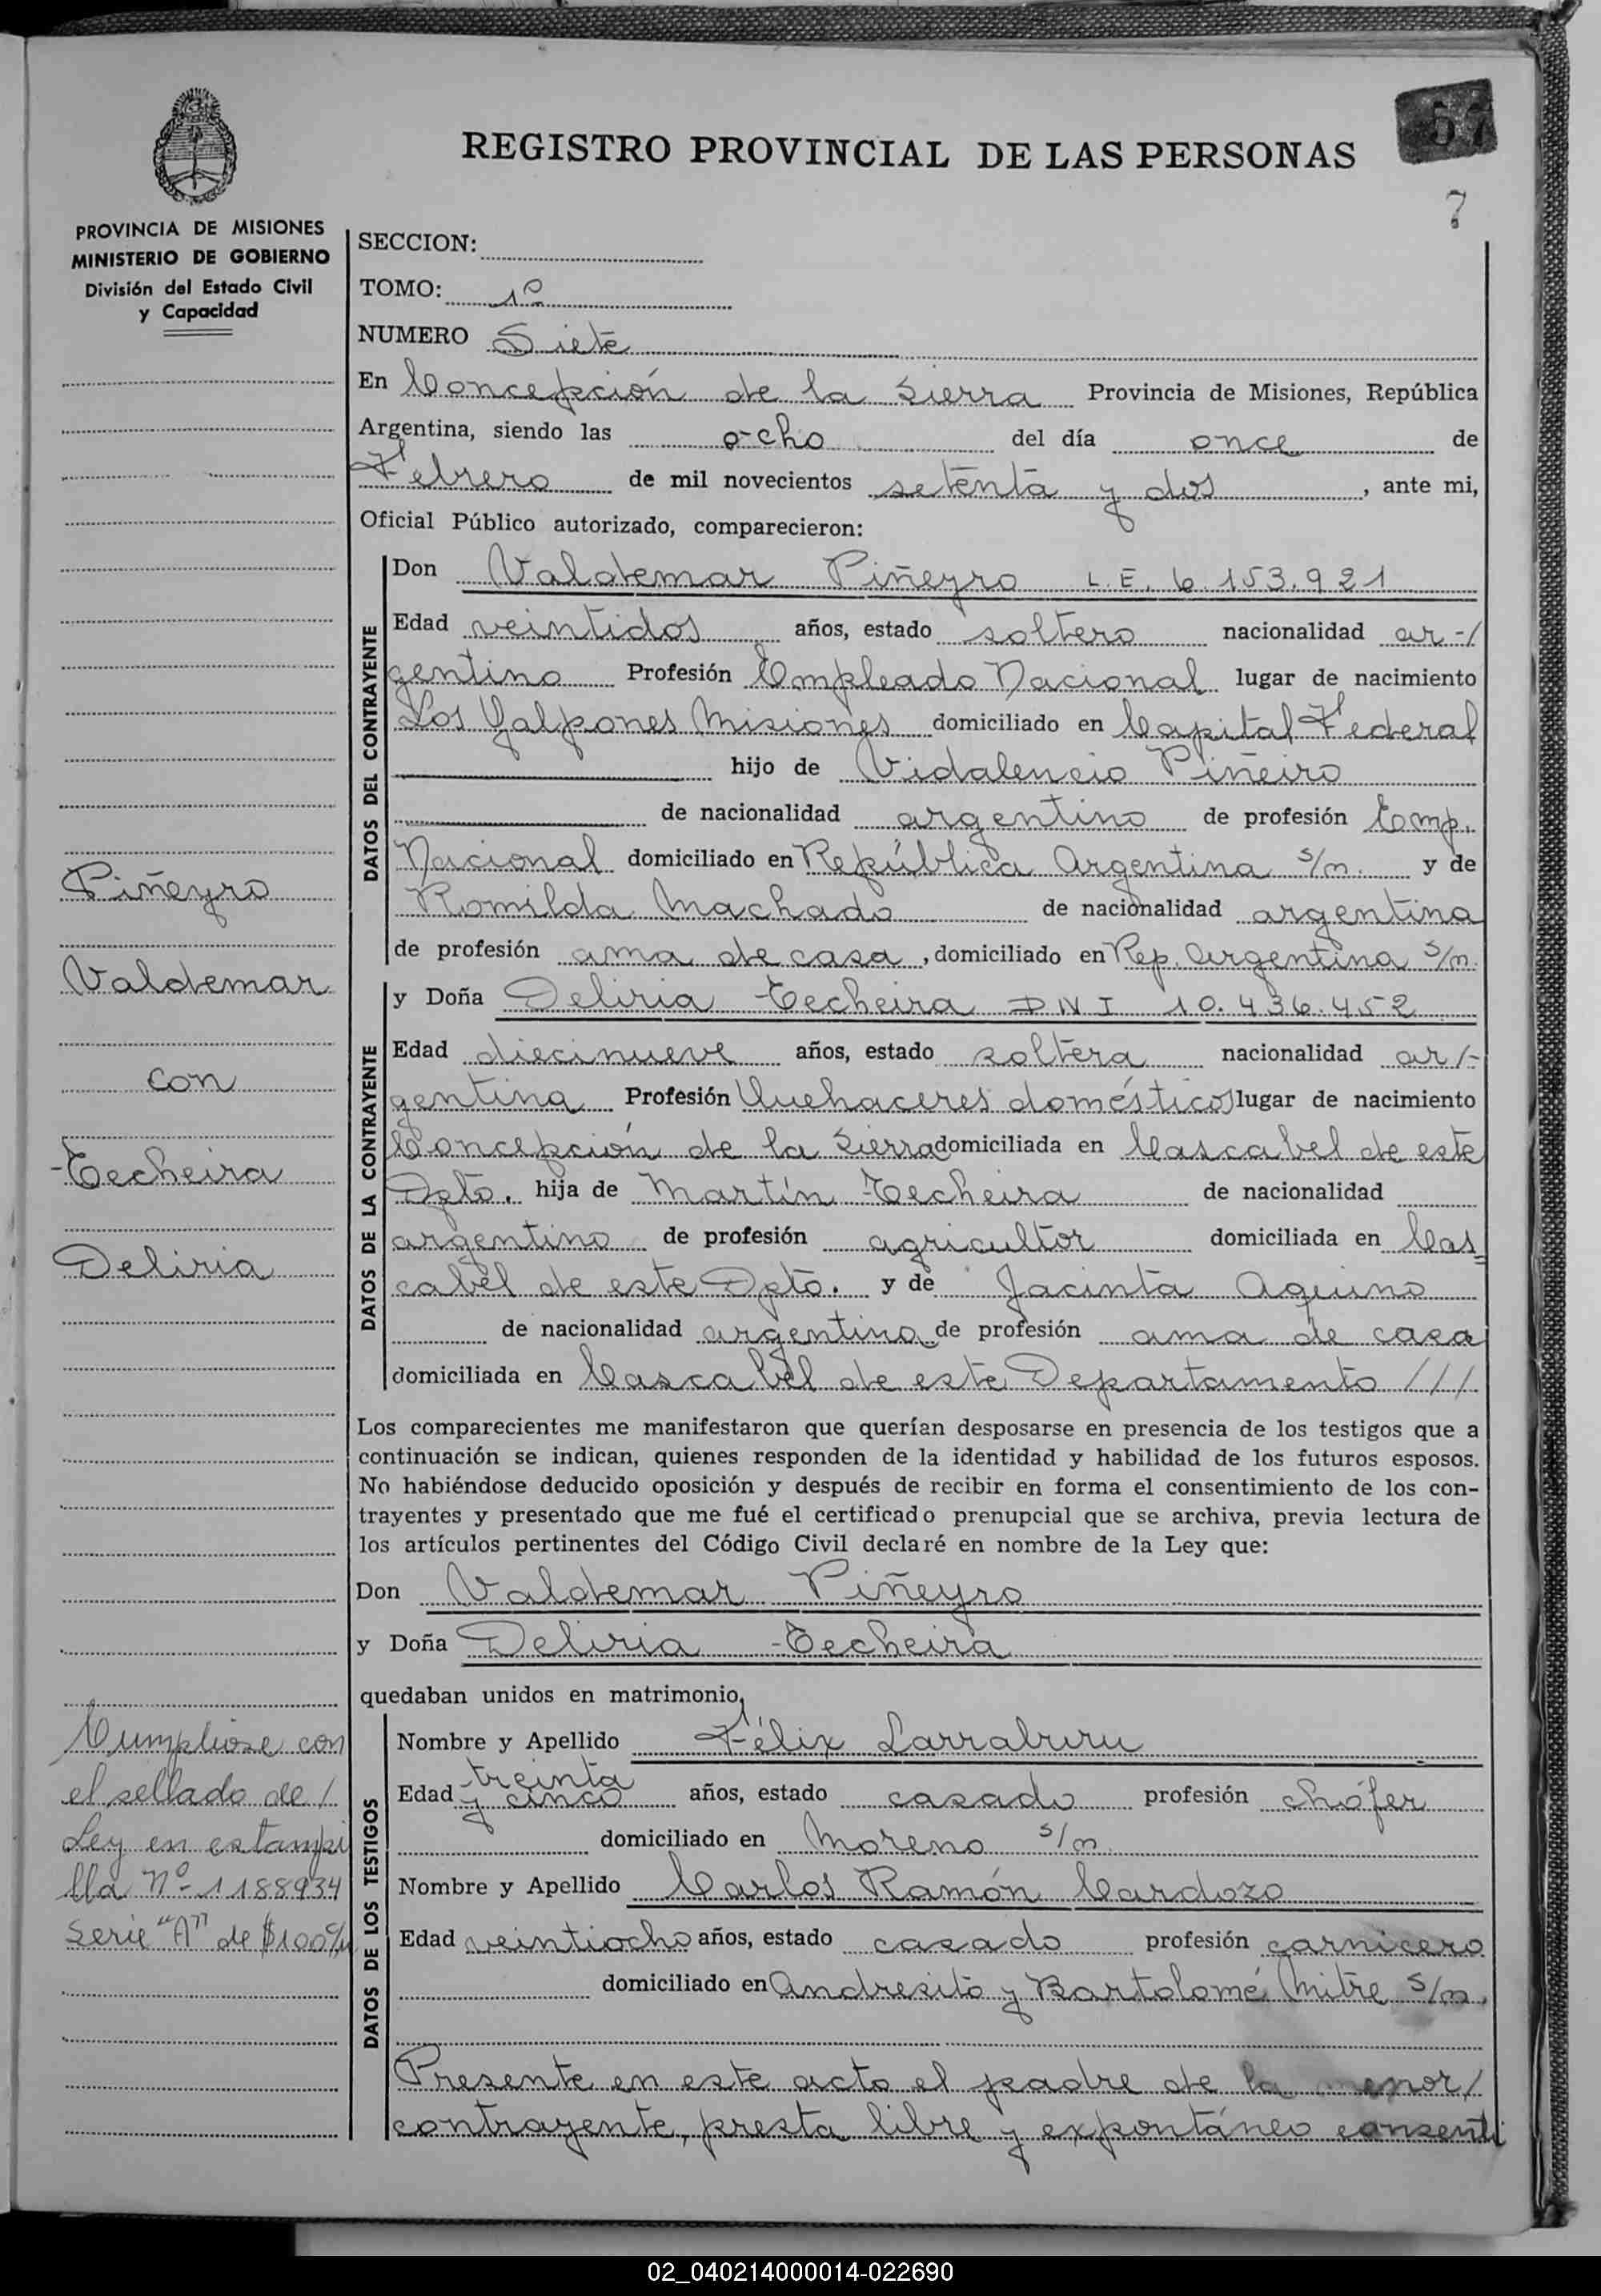 57
REGISTRO PROVINCIAL DE LAS PERSONAS
7
PROVINCIA DE MISIONES
MINISTERIO DE GOBIERNO
División del Estado Civil
y Capacidad
Piñeyro
Valdemar
con
Techeira
Deliria
Cumpliose con
el sellado de /
Ley en estampi
lla Nº 1188934
Serie "A" de $100
SECCION:
TOMO: 1º
NUMERO Siete
En Concepción de la Sierra Provincia de Misiones, República
Argentina, siendo las ocho del día once de
Febrero de mil novecientos setenta y dos, ante mi,
Oficial Público autorizado, comparecieron:
DATOS DEL CONTRAYENTE
Don Valdemar Piñeyro L.E. 6.153.921
Edad veintidos años, estado soltero nacionalidad ar-/
gentino Profesión Empleado Nacional lugar de nacimiento
Los Galpones Misiones domiciliado en Capital Federal
hijo de Vidalencio Piñeiro
de nacionalidad argentino de profesión Emp.
Nacional domiciliado en República Argentina s/n. y de
Romilda Machado de nacionalidad argentina
de profesión ama de casa, domiciliado en Rep. Argentina s/n.
DATOS DE LA CONTRAYENTE
y Doña Deliria Techeira DNI 10.436.452
Edad diecinueve años, estado soltera nacionalidad ar/-
gentina Profesión Quehaceres domésticos lugar de nacimiento
Concepción de la Sierra domiciliada en Cascabel de este
Dpto. hija de Martín Techeira de nacionalidad
argentino de profesión agricultor domiciliada en Cas=
cabel de este Dpto. y de Jacinta Aquino
de nacionalidad argentina de profesión ama de casa
domiciliada en Cascabel de este Departamento ///
Los comparecientes me manifestaron que querían desposarse en presencia de los testigos que a
continuación se indican, quienes responden de la identidad y habilidad de los futuros esposos.
No habiéndose deducido oposición y después de recibir en forma el consentimiento de los con-
trayentes y presentado que me fué el certificado prenupcial que se archiva, previa lectura de
los artículos pertinentes del Código Civil declaré en nombre de la Ley que:
Don Valdemar Piñeyro
y Doña Deliria Techeira
quedaban unidos en matrimonio,
DATOS DE LOS TESTIGOS
Nombre y Apellido Félix Larraburu
Edad treinta y cinco años, estado casado profesión chófer
domiciliado en Moreno s/n
Nombre y Apellido Carlos Ramón Cardozo
Edad veintiocho años, estado casado profesión carnicero
domiciliado en Andresito y Bartolomé Mitre s/n.
Presente en este acto el padre de la menor/
contrayente, presta libre y expontáneo consenti
02_040214000014-022690